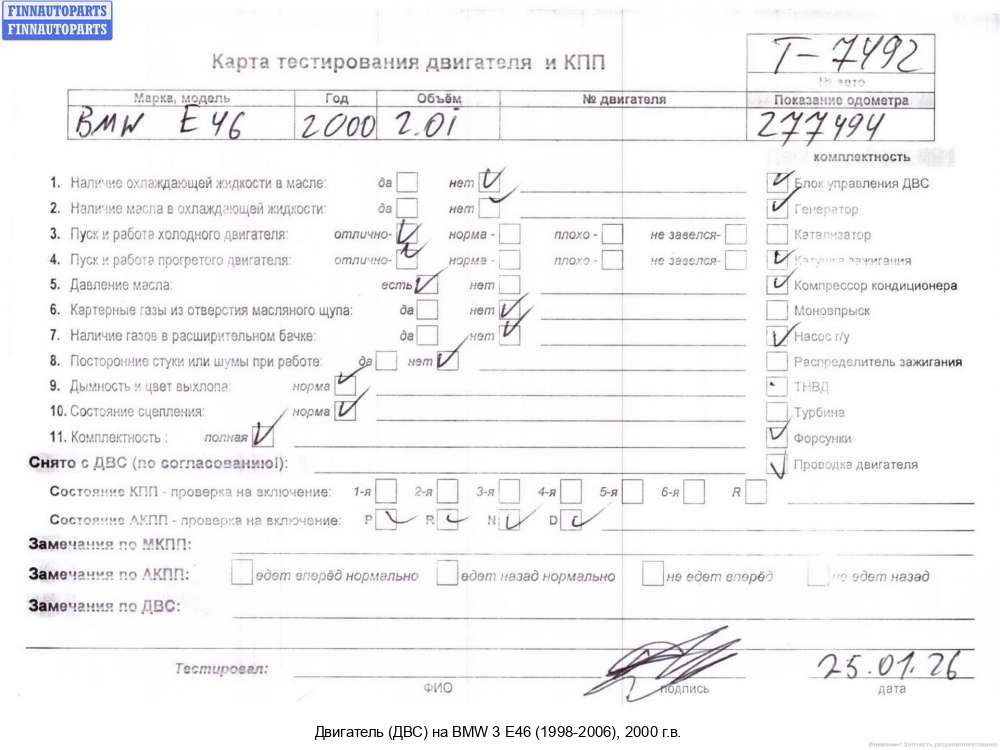 FINNAUTOPARTS
FINNAUTOPARTS
Карта тестирования двигателя и КПП
T-7492
№ авто
Марка, модель Год Объём № двигателя Показание одометра
BMW E46 2000 2.0i 277494
комплектность
1. Наличие охлаждающей жидкости в масле: да нет Блок управления ДВС
2. Наличие масла в охлаждающей жидкости: да нет Генератор
3. Пуск и работа холодного двигателя: отлично- норма - плохо - не завелся- Катализатор
4. Пуск и работа прогретого двигателя: отлично- норма - плохо - не завелся- Катушка зажигания
5. Давление масла: есть нет Компрессор кондиционера
6. Картерные газы из отверстия масляного щупа: да нет Моновпрыск
7. Наличие газов в расширительном бачке: да нет Насос г/у
8. Посторонние стуки или шумы при работе: да нет Распределитель зажигания
9. Дымность и цвет выхлопа: норма ТНВД
10. Состояние сцепления: норма Турбина
11. Комплектность : полная Форсунки
Снято с ДВС (по согласованию!): Проводка двигателя
Состояние КПП - проверка на включение: 1-я 2-я 3-я 4-я 5-я 6-я R
Состояние АКПП - проверка на включение: P R N D
Замечания по МКПП:
Замечания по АКПП: едет вперёд нормально едет назад нормально не едет вперёд не едет назад
Замечания по ДВС:
Тестировал: 25.01.26
ФИО подпись дата
Двигатель (ДВС) на BMW 3 E46 (1998-2006), 2000 г.в.